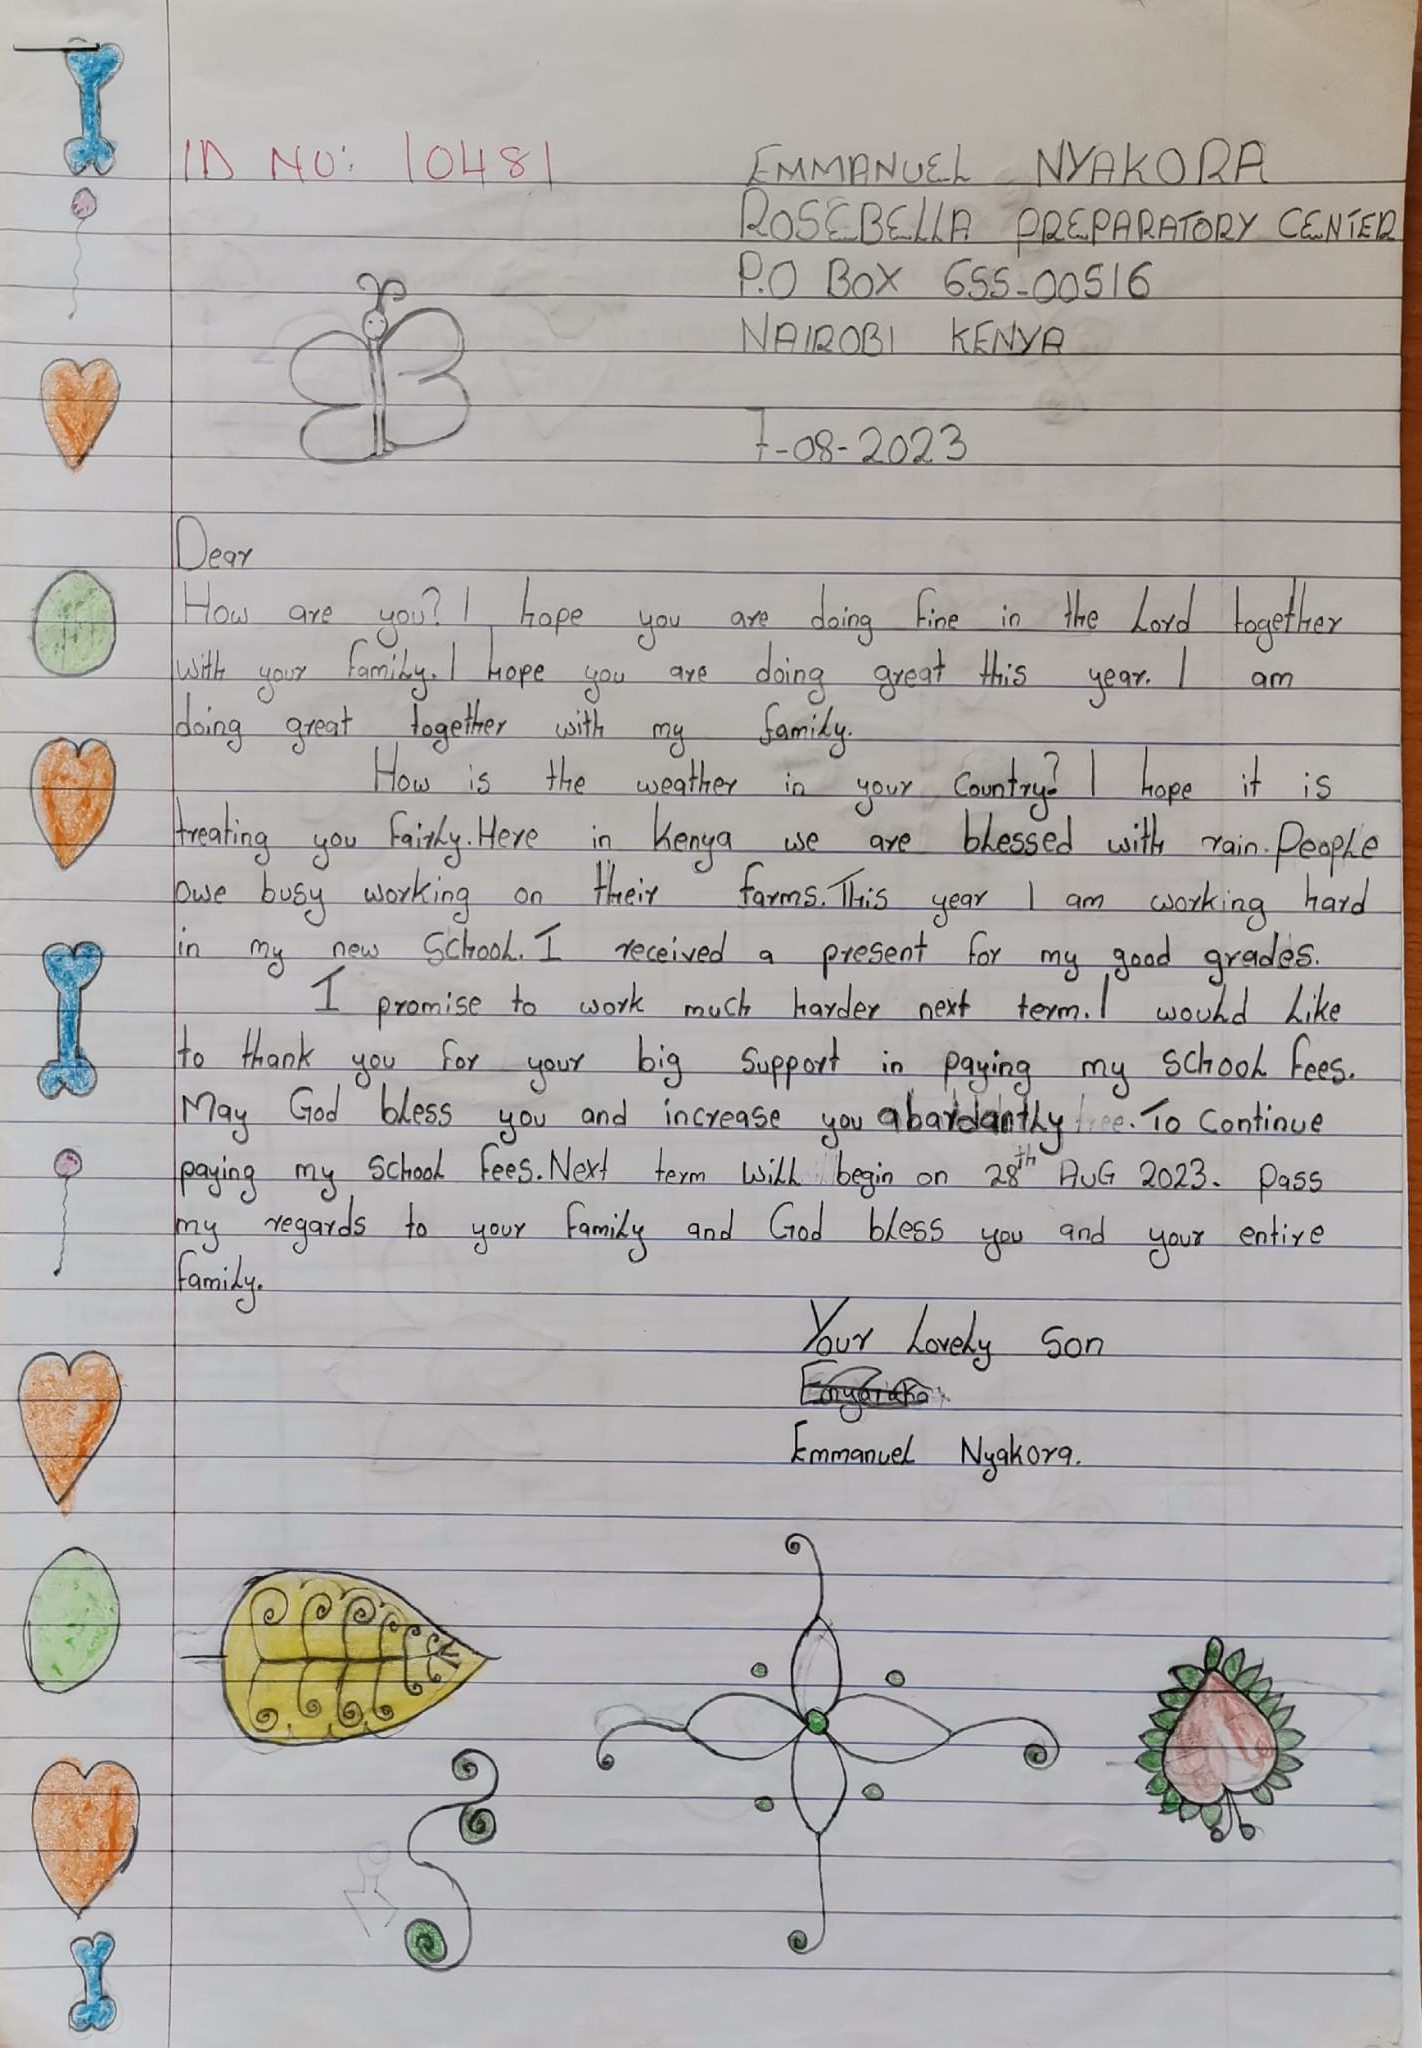 ID NO: 10481
EMMANUEL NYAKORA
ROSEBELLA PREPARATORY CENTER
P.O BOX 655-00516
NAIROBI KENYA
7-08-2023
Dear
How are you? I hope you are doing fine in the Lord together
with your family. I hope you are doing great this year. I am
doing great together with my family.
How is the weather in your country? I hope it is
treating you fairly. Here in Kenya we are blessed with rain. People
owe busy working on their farms. This year I am working hard
in my new school. I received a present for my good grades.
I promise to work much harder next term. I would like
to thank you for your big support in paying my school fees.
May God bless you and increase you abardantly. To continue
paying my school fees. Next term will begin on 28th AUG 2023. Pass
my regards to your family and God bless you and your entire
family.
Your Lovely Son
Emmanuel Nyakora.